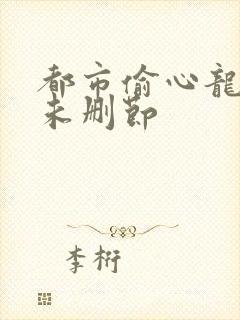 都市偷心龍
未删節
李桁